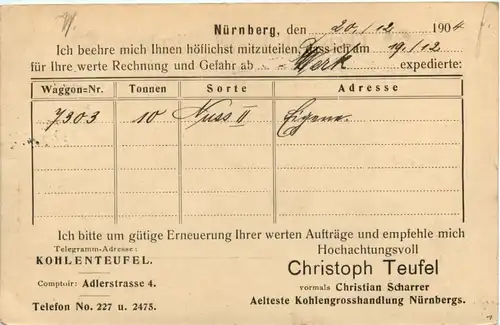 Nürnberg, den 20./12 1904
Ich beehre mich Ihnen höflichst mitzuteilen, dass ich am 19./12
für Ihre werte Rechnung und Gefahr ab Werk expedierte:
Waggon=Nr. Tonnen Sorte Adresse
7303 10 Nuss II Eigene.
Ich bitte um gütige Erneuerung Ihrer werten Aufträge und empfehle mich
Telegramm-Adresse: Hochachtungsvoll
KOHLENTEUFEL. Christoph Teufel
Comptoir: Adlerstrasse 4. vormals Christian Scharrer
Telefon No. 227 u. 2475. Aelteste Kohlengrosshandlung Nürnbergs.